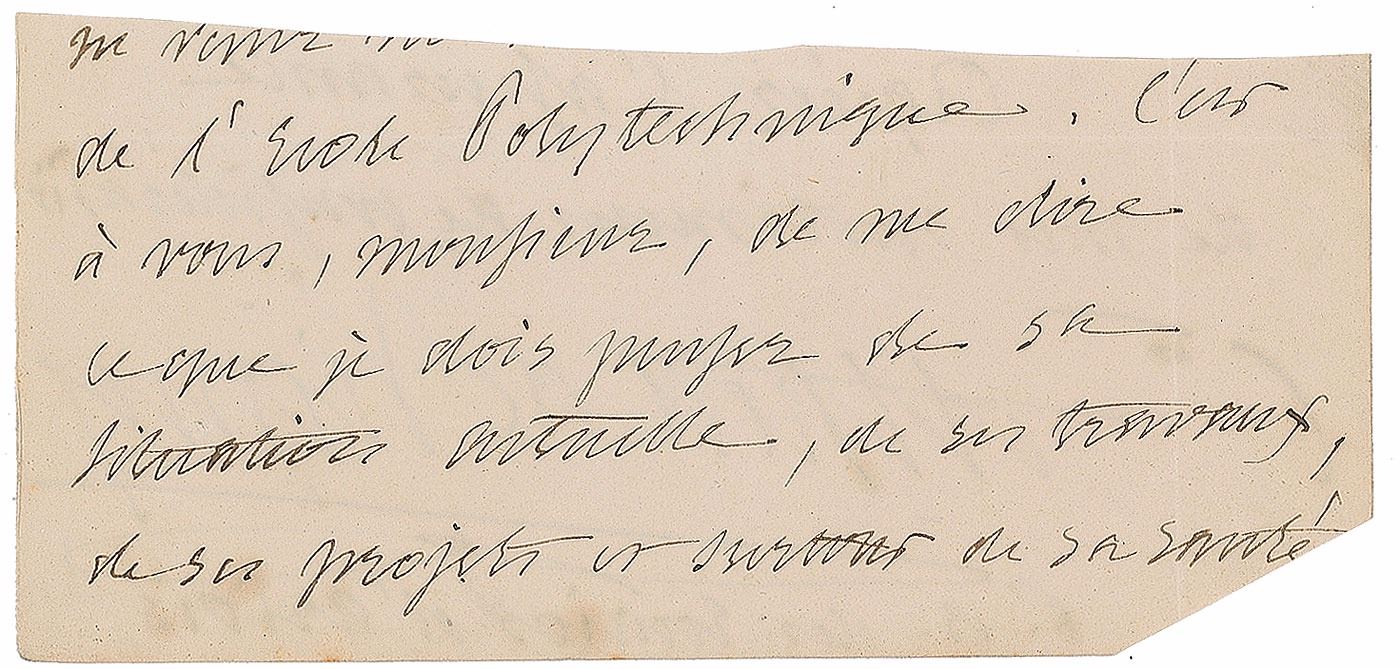 de l'Ecole Polytechnique. C'est
à vous, monsieur, de me dire
ce que je dois penser de sa
situation actuelle, de ses travaux,
de ses projets et surtout de sa santé